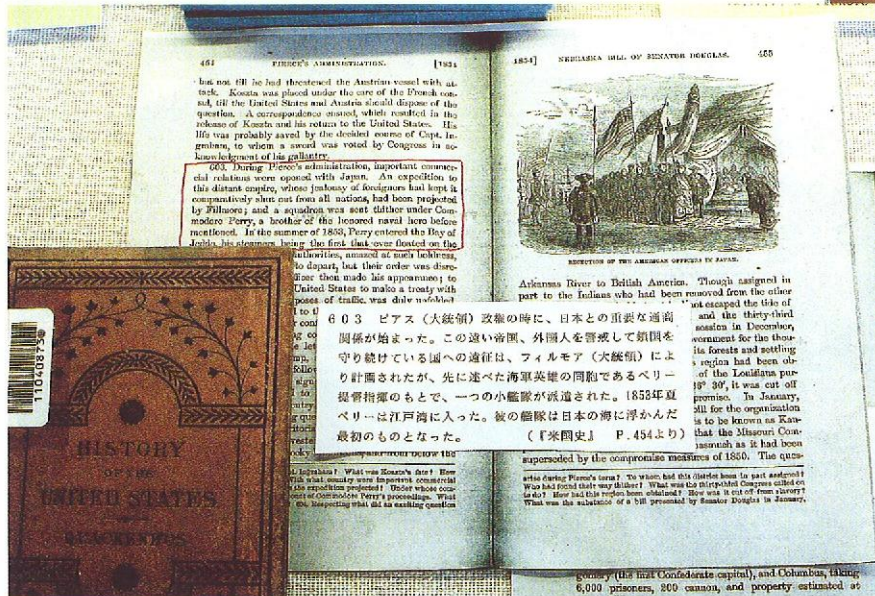 454 PIERCE'S ADMINISTRATION. [1854
but not till he had threatened the Austrian vessel with at-
tack. Koszta was placed under the care of the French con-
sul, till the United States and Austria should dispose of the
question. A correspondence ensued, which resulted in the
release of Koszta and his return to the United States. His
life was probably saved by the decided course of Capt. In-
graham, to whom a sword was voted by Congress in ac-
knowledgment of his gallantry.
603. During Pierce's administration, important commer-
cial relations were opened with Japan. An expedition to
this distant empire, whose jealousy of foreigners had kept it
comparatively shut out from all nations, had been projected
by Fillmore; and a squadron was sent thither under Com-
modore Perry, a brother of the honored naval hero before
mentioned. In the summer of 1853, Perry entered the Bay of
Jeddo, his steamers being the first that ever floated on the
authorities, amazed at such boldness,
to depart, but their order was disre-
officer then made his appearance; to
United States to make a treaty with
poses of traffic, was duly unfolded
HISTORY
OF THE
UNITED STATES
QUACKENBOS
110408730
1854] NEBRASKA BILL OF SENATOR DOUGLAS. 455
RECEPTION OF THE AMERICAN OFFICERS IN JAPAN.
Arkansas River to British America. Though assigned in
part to the Indians who had been removed from the other
not escaped the tide of
and the thirty-third
session in December,
vernment for the thou-
its forests and settling
region had been ob-
of the Louisiana pur-
36° 30', it was cut off
promise. In January,
bill for the organization
is to be known as Kan-
that the Missouri Com-
asmuch as it had been
superseded by the compromise measures of 1850. The ques-
603 ピアス(大統領)政権の時に、日本との重要な通商
関係が始まった。この遠い帝国、外国人を警戒して鎖国を
守り続けている国への遠征は、フィルモア(大統領)によ
り計画されたが、先に述べた海軍英雄の同胞であるペリー
提督指揮のもとで、一つの小艦隊が派遣された。1853年夏
ペリーは江戸湾に入った。彼の艦隊は日本の海に浮かんだ
最初のものとなった。 (『米国史』 P.454より)
arise during Pierce's term? To whom had this district been in part assigned?
Who had found their way thither? What was the thirty-third Congress called on
to do? How had this region been obtained? How was it cut off from slavery?
What was the substance of a bill presented by Senator Douglas in January,
Ingraham? What was Koszta's fate? How
With what country were important commercial
the expedition projected? Under whose com-
count of Commodore Perry's proceedings. What
604. Respecting what did an exciting question
gomery (the first Confederate capital), and Columbus, taking
6,000 prisoners, 200 cannon, and property estimated at